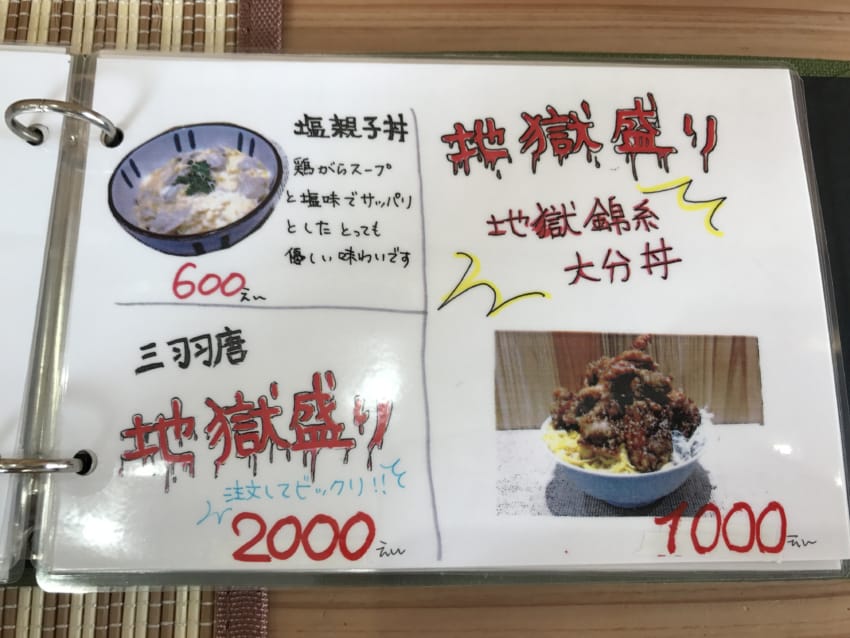 塩親子丼
鶏がらスープ
と塩味でサッパリ
としたとっても
優しい味わいです
600えん
三羽唐
地獄盛り
注文してビックリ!!
2000えん
地獄盛り
地獄錦糸
大分丼
1000えん